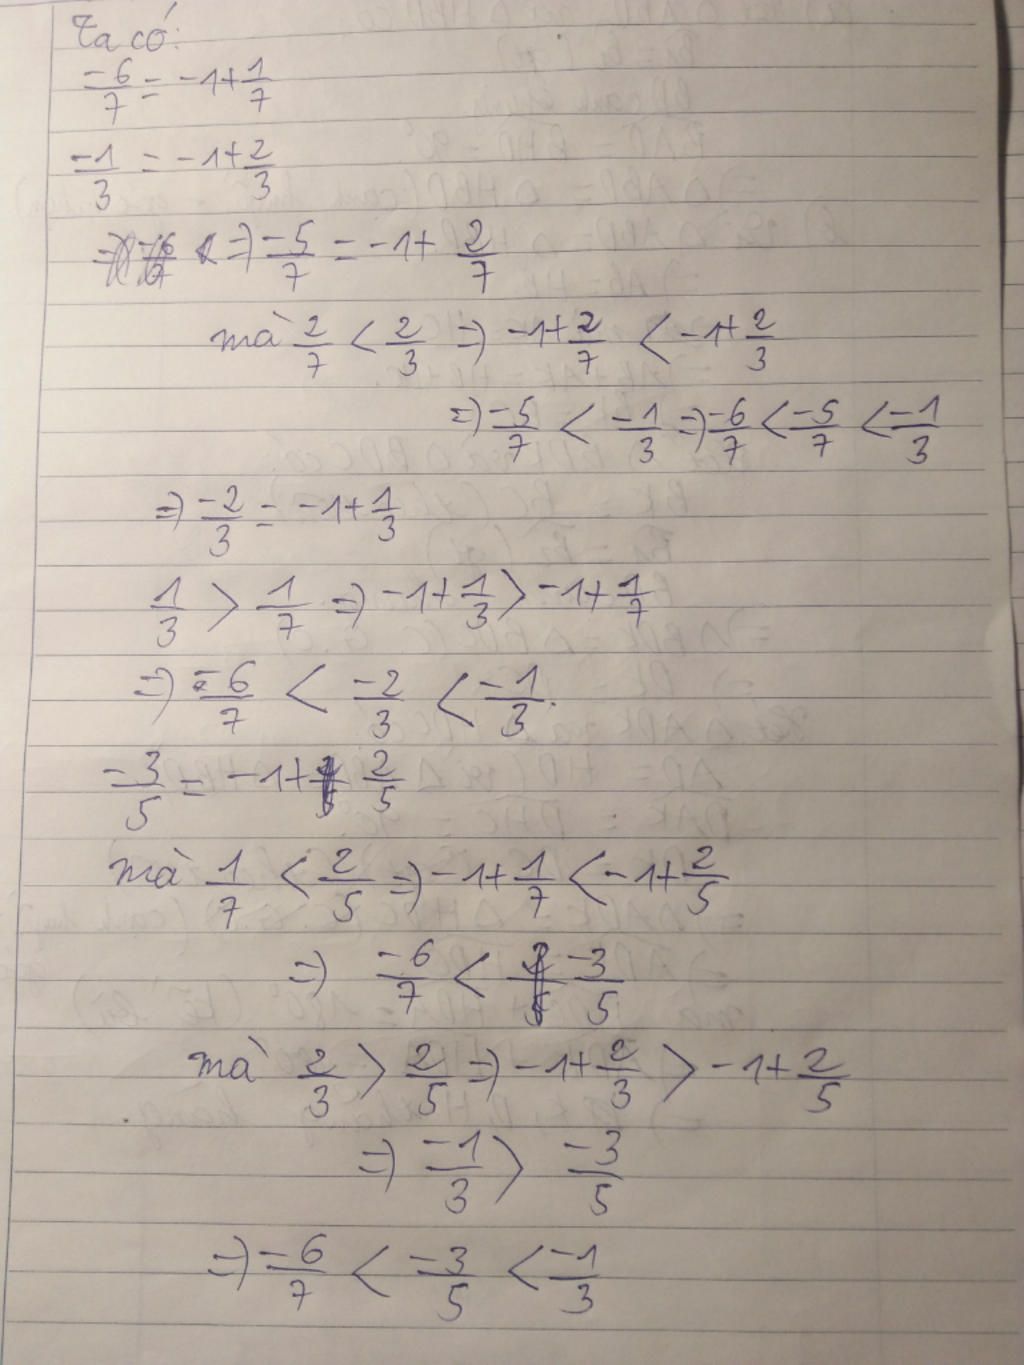 Ta có:
-6/7 = -1+1/7
-1/3 = -1+2/3
=) -5/7 = -1+ 2/7
mà 2/7 < 2/3 =) -1+2/7 < -1+2/3
=) -5/7 < -1/3 =) -6/7 < -5/7 < -1/3
=) -2/3 = -1+1/3
1/3 > 1/7 =) -1+1/3 > -1+1/7
=) -6/7 < -2/3 < -1/3.
-3/5 = -1+ 2/5
mà 1/7 < 2/5 =) -1+1/7 < -1+2/5
=) -6/7 < -3/5
mà 2/3 > 2/5 =) -1+2/3 > -1+2/5
=) -1/3 > -3/5
=) -6/7 < -3/5 < -1/3